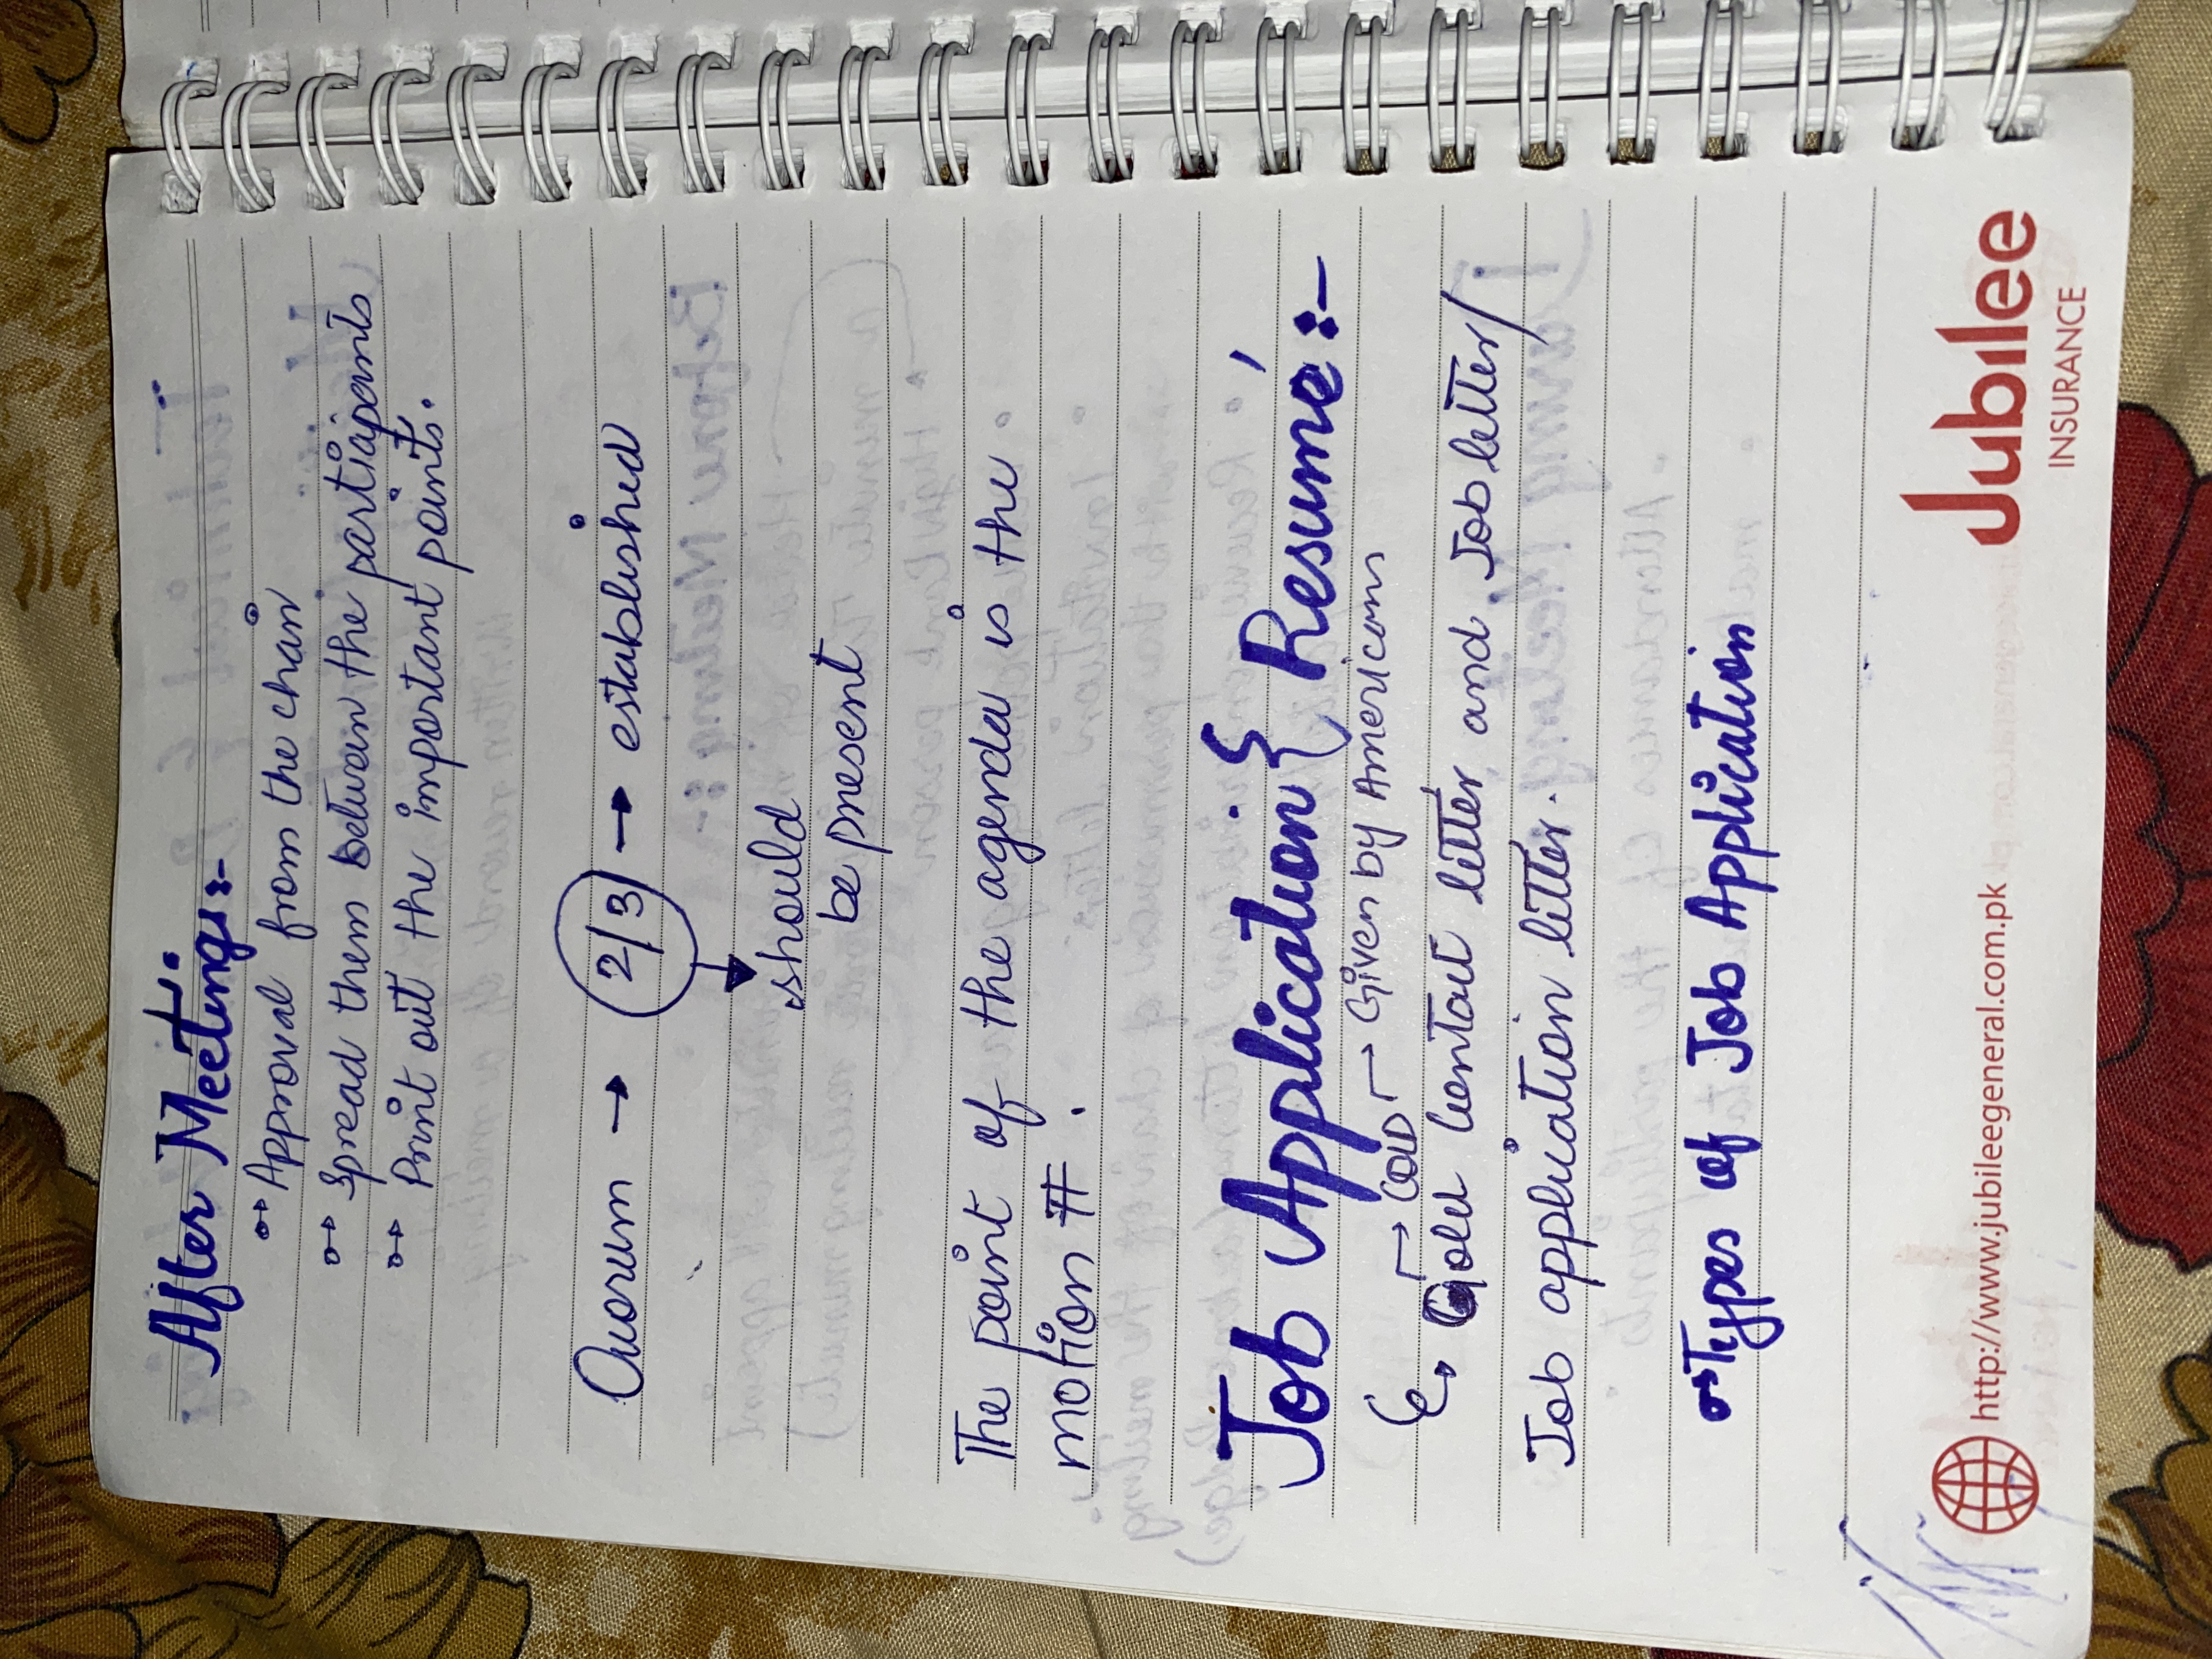 After Meetings:-
Approval from the chair
Spread them between the participants
Print out the important points.
Quorum → 2/3 → established
should
be present
The point of the agenda is the
motion #.
Job Application & Resumé:-
Given by Americans
COLD
Gold Contact letter and Job letter/
Job application letter.
Types of Job Application
http://www.jubileegeneral.com.pk
Jubilee
INSURANCE